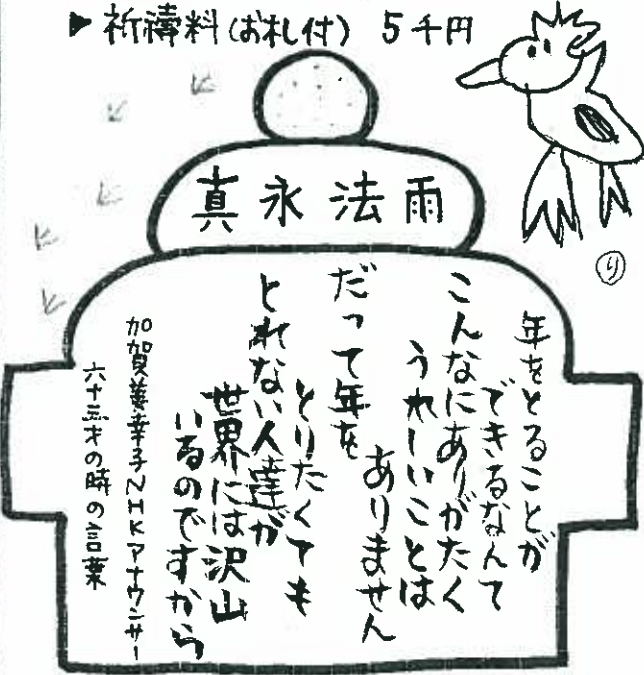 ▶祈祷料(お札付) 5千円
真永法雨
年をとることが
できるなんて
こんなにありがたく
うれしいことは
ありません
だって年を
とりたくても
とれない人達が
世界には沢山
いるのですから
加賀美幸子NHKアナウンサー
六十三才の時の言葉
り